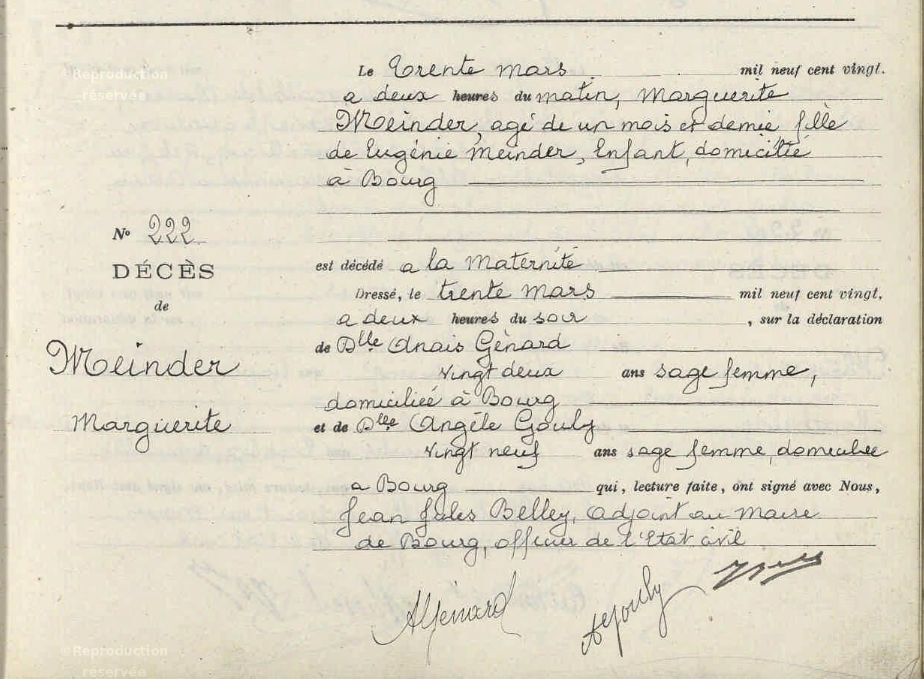 Le Trente mars mil neuf cent vingt.
a deux heures du matin, Marguerite
Meinder, agé de un mois et demie fille
de Eugénie Meinder, Enfant, domicilié
à Bourg
N° 222
DÉCÈS
de
Meinder
Marguerite
est décédé a la Maternité
Dressé, le trente mars mil neuf cent vingt,
a deux heures du soir, sur la déclaration
de Dlle Anais Génard
vingt deux ans sage femme,
domiciliée à Bourg
et de Dlle Angèle Gouly
vingt neuf ans sage femme, domiciliée
a Bourg qui, lecture faite, ont signé avec Nous,
Jean Jules Belley, adjoint au Maire
de Bourg, officier de l'Etat civil
AGénard
AGouly
©Reproduction
réservée
©Reproduction
réservée